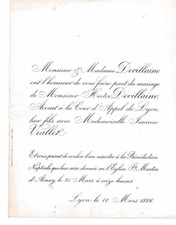 Monsieur & Madame Devillaine
ont l'honneur de vous faire part du mariage
de Monsieur Hector Devillaine,
Avocat à la Cour d'Appel de Lyon,
leur fils, avec Mademoiselle Jeanne
Viallet.
Et vous prient de vouloir bien assister à la Bénédiction
Nuptiale qui leur sera donnée en l'Eglise St Martin
d'Ainay, le 25 Mars à onze heures.
Lyon, le 10 Mars 1886.